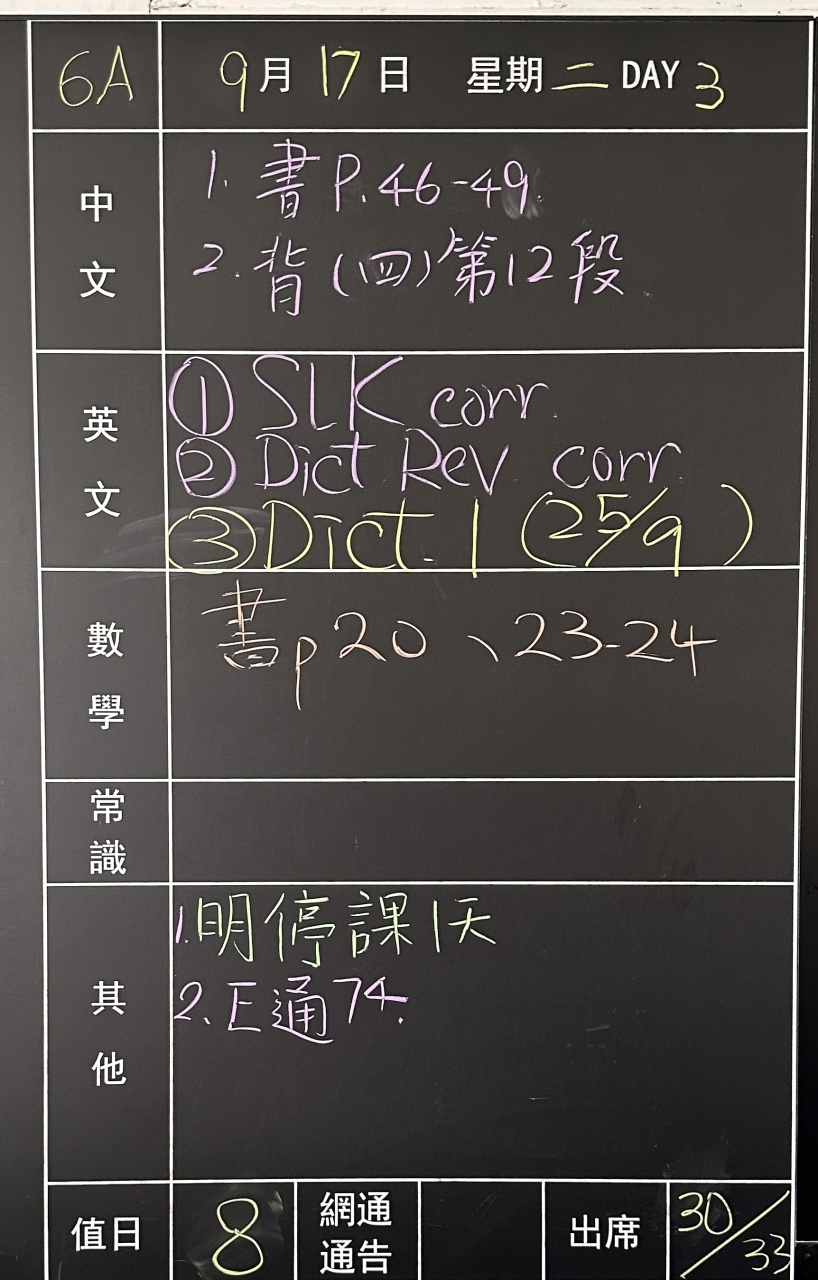 6A 9月17日 星期二 DAY 3
中文
1. 書P.46-49.
2. 背(四)第12段
英文
① SLK corr.
② Dict Rev corr.
③ Dict. 1 (25/9)
數學
書p20、23-24
常識
其他
1.明停課1天
2.E通74.
值日 8 網通通告 出席 30/33